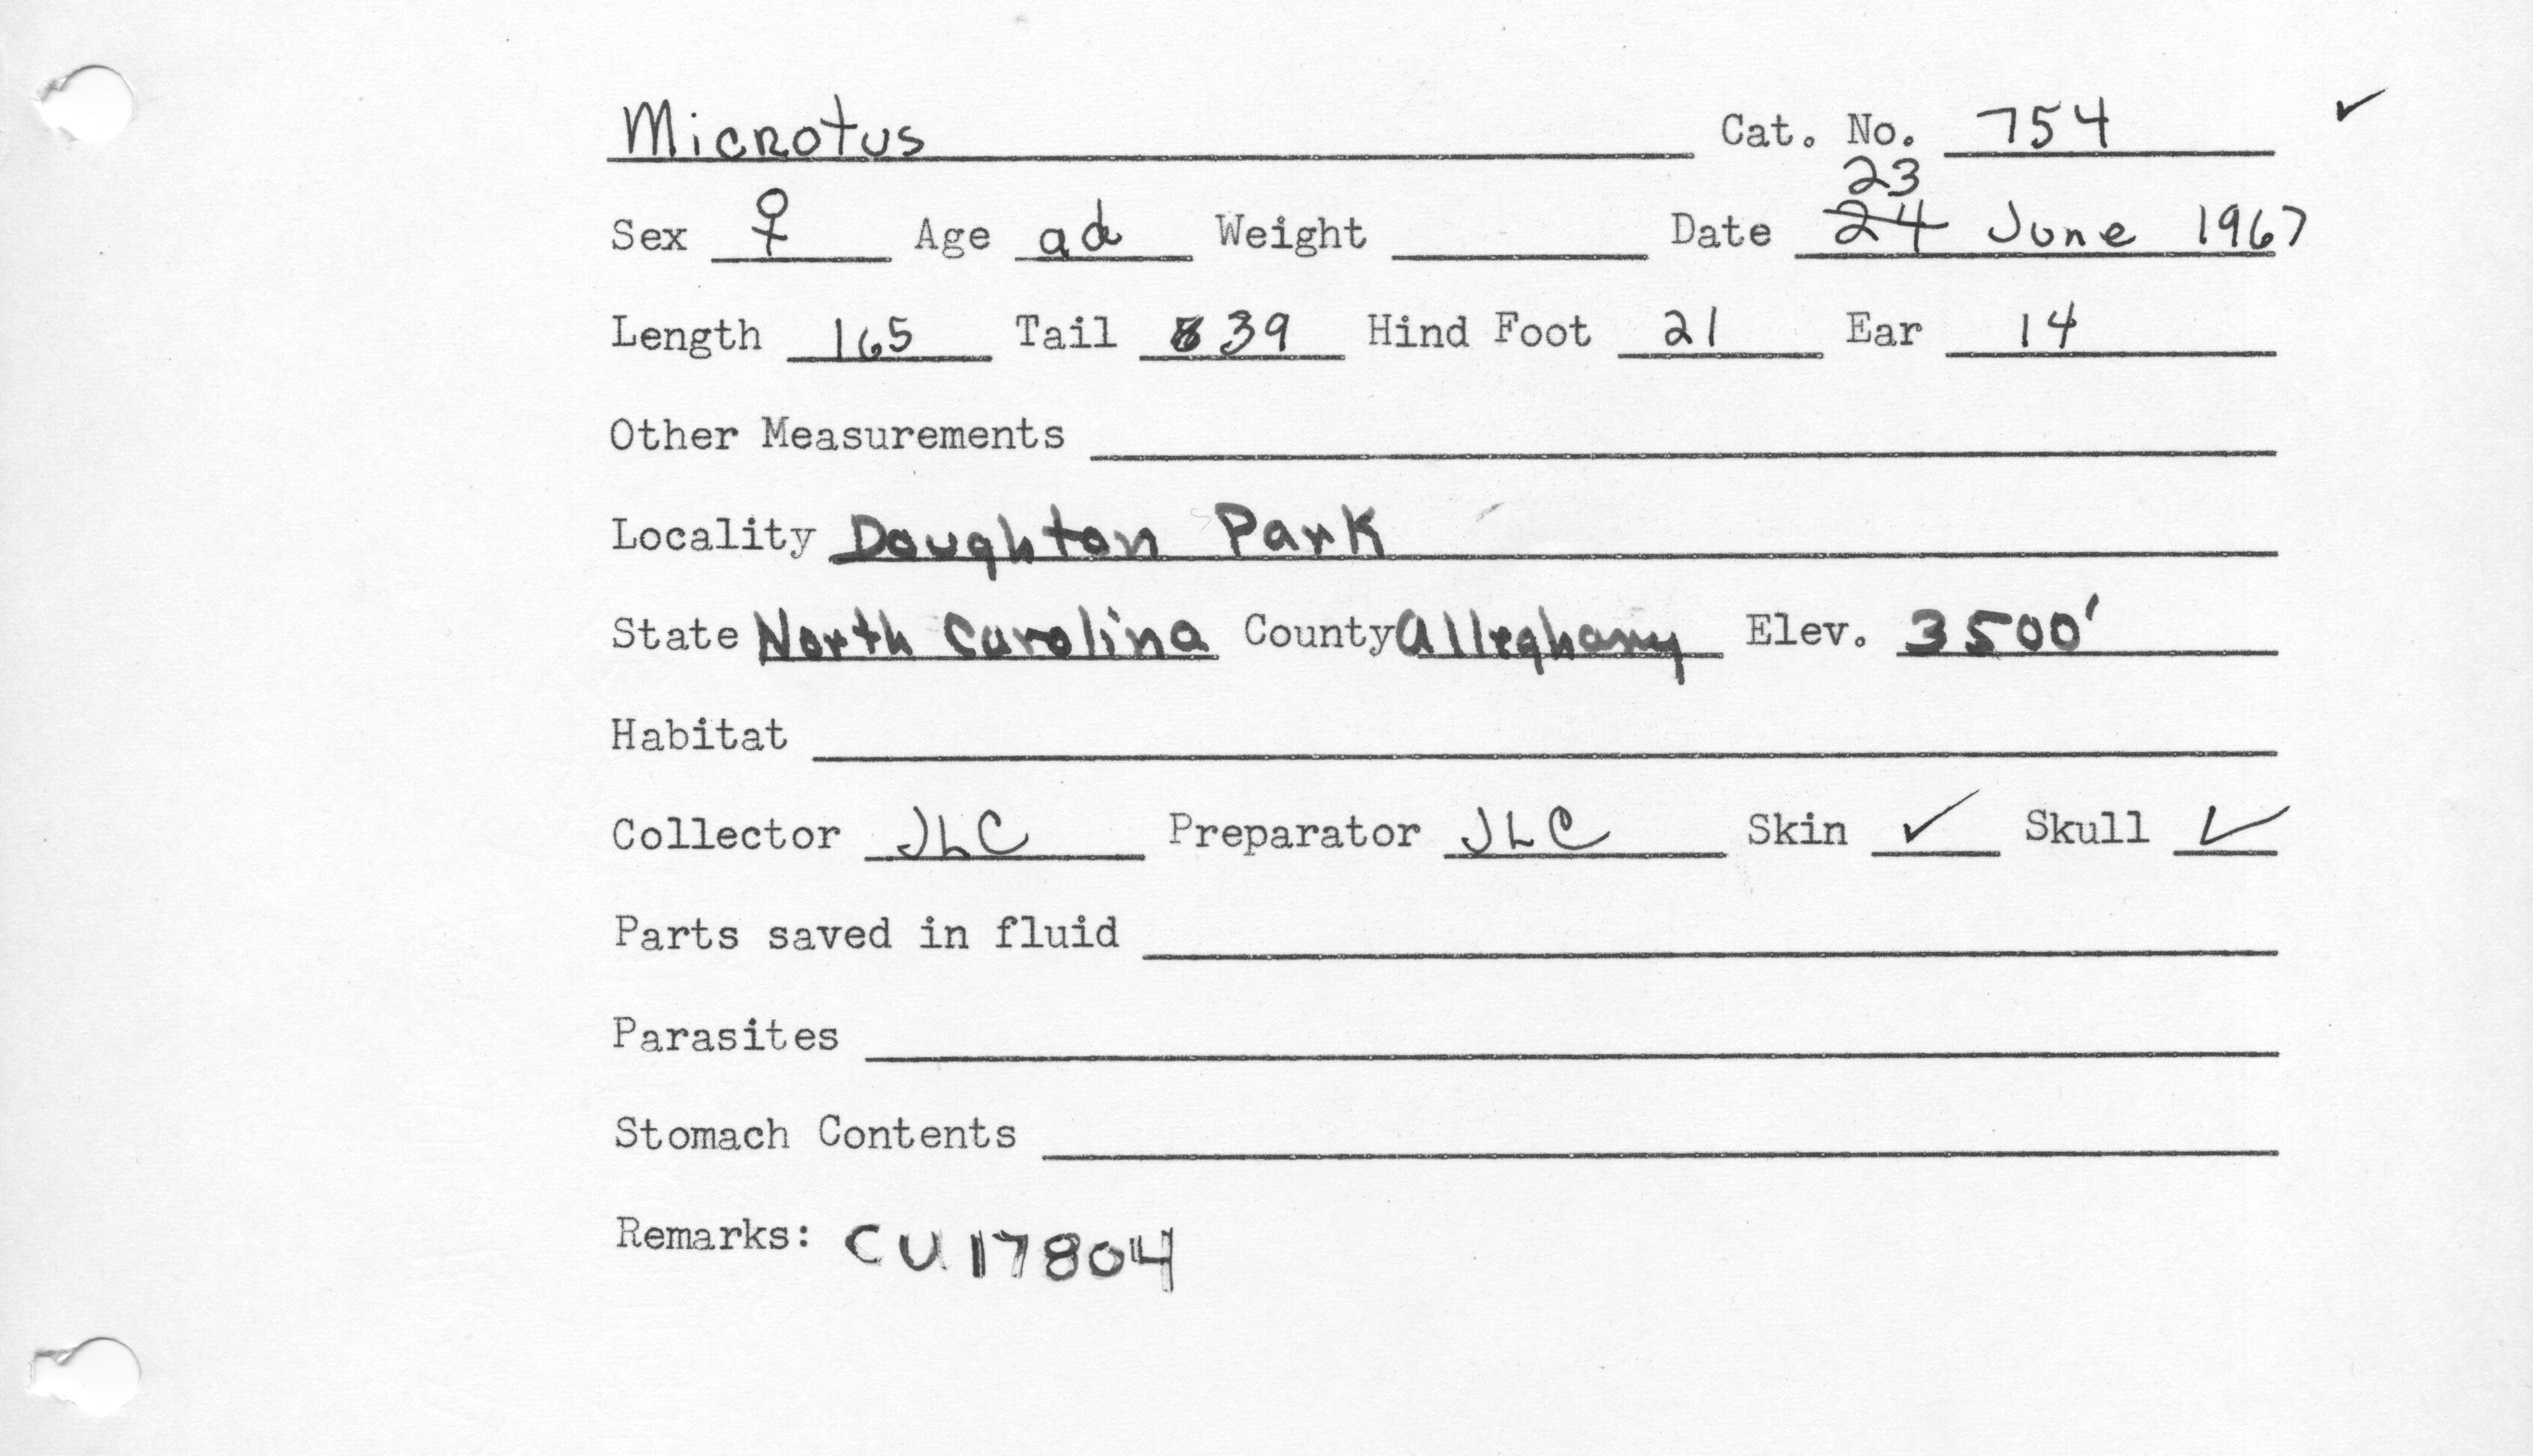 Microtus Cat. No. 754 ✓
23
Sex ♀ Age ad Weight Date 24 June 1967
Length 165 Tail 39 Hind Foot 21 Ear 14
Other Measurements
Locality Doughton Park
State North Carolina County Alleghany Elev. 3500'
Habitat
Collector JLC Preparator JLC Skin ✓ Skull ✓
Parts saved in fluid
Parasites
Stomach Contents
Remarks: CU17804